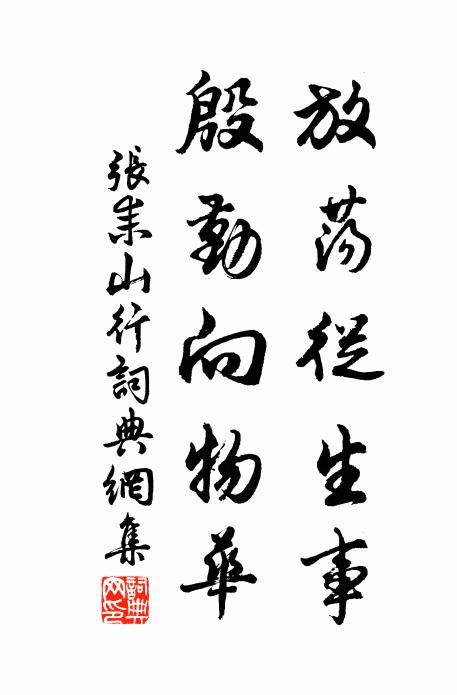 放蕩從生事
殷勤向物華
張耒山行詞典網集
詞典網印